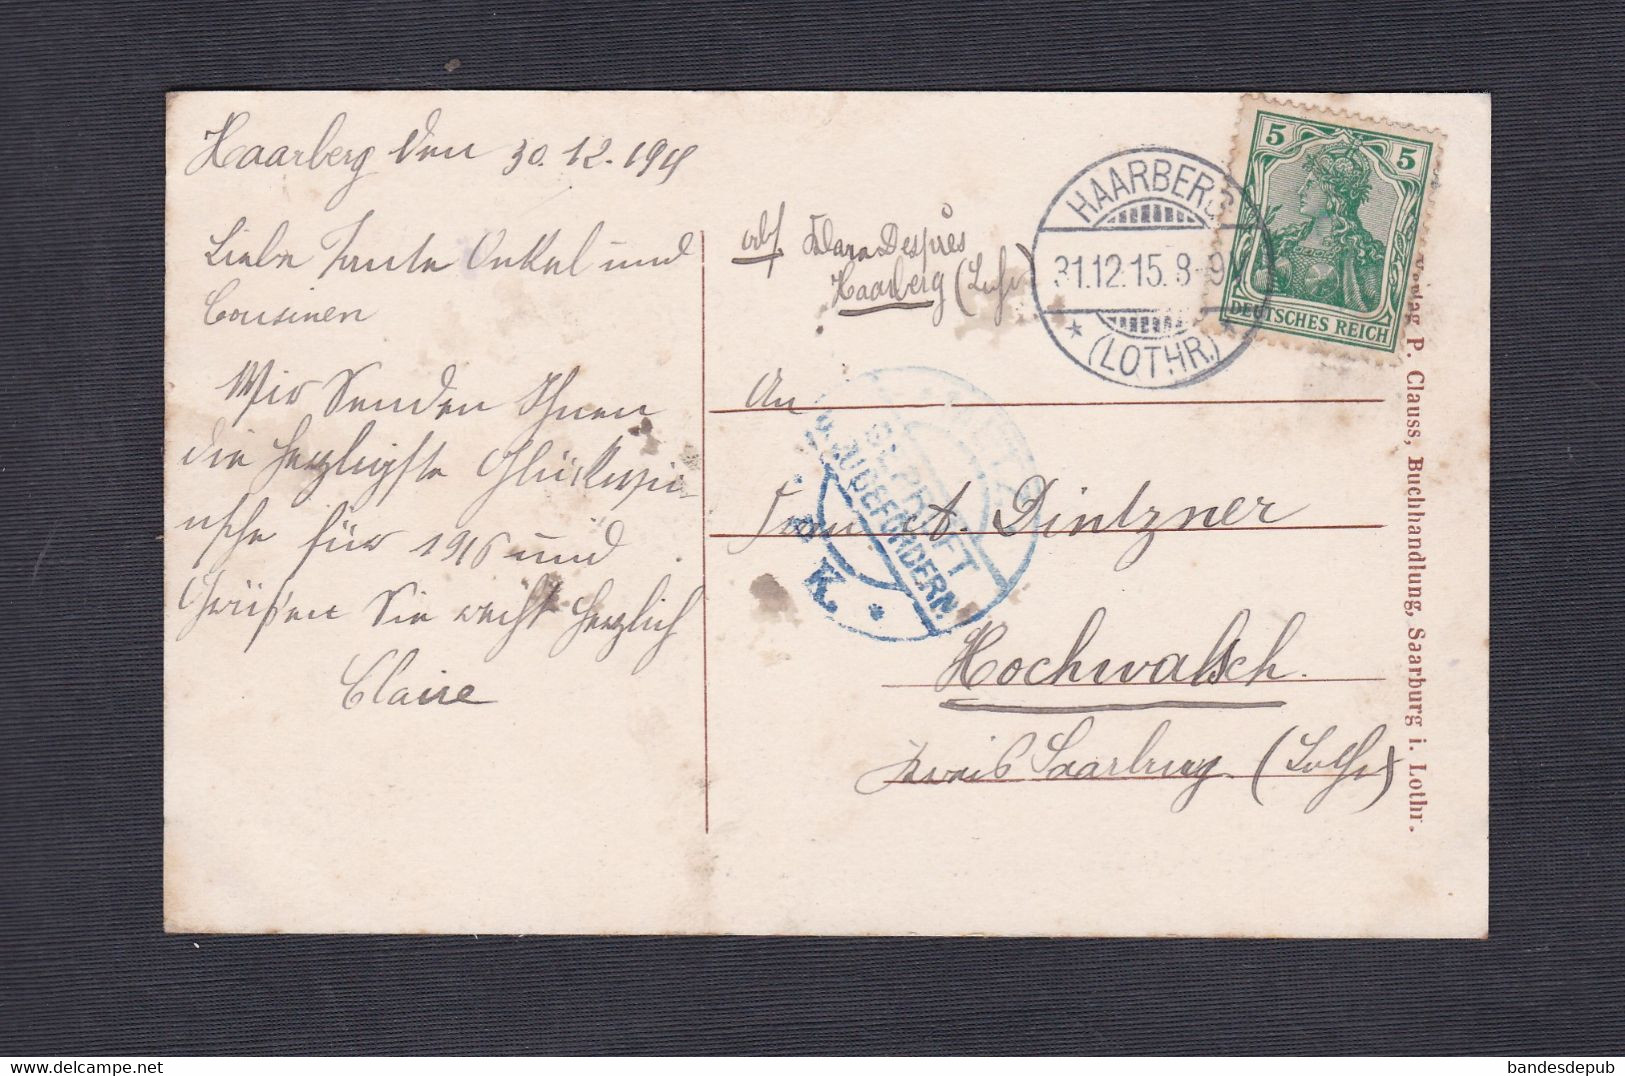 Haarberg den 30.12.1915
Liebe Tante Onkel und
Cousinen
Wir Senden Ihnen
die herzligste Glückwü-
nsche für 1916 und
Grüßen Sie recht herzlich
Claire
abs. Klara Despres
Haarberg (Lothr)
HAARBERG
31.12.15. 8-9V
* (LOTHR.) *
5 5
DEUTSCHES REICH
An
GEPRÜFT
U. ZU BEFÖRDERN.
K. *
Dintzner
Hochwalsch.
Kreis Saarburg (Lothr)
Verlag P. Clauss, Buchhandlung, Saarburg i. Lothr.
bandesdepub
delcampe.net